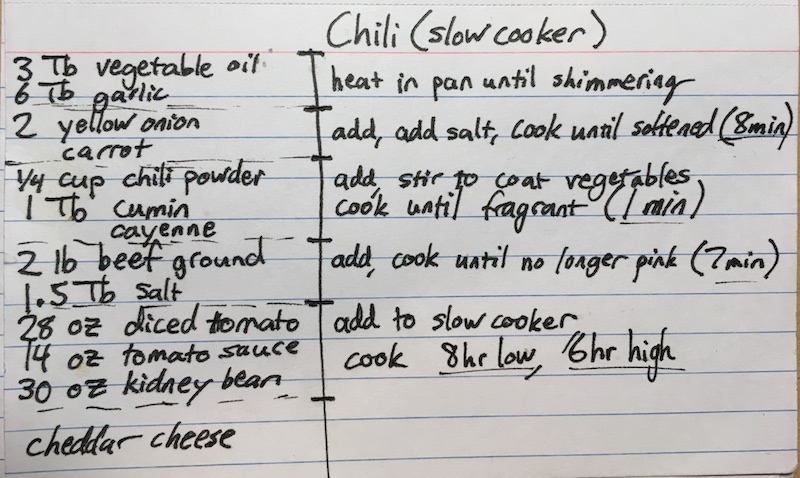 Chili (slow cooker)
3 Tb vegetable oil
6 Tb garlic
heat in pan until shimmering
2 yellow onion
carrot
add, add salt, cook until softened (8min)
1/4 cup chili powder
1 Tb cumin
cayenne
add, stir to coat vegetables
cook until fragrant (1 min)
2 lb beef ground
1.5 Tb salt
add, cook until no longer pink (7min)
28 oz diced tomato
14 oz tomato sauce
30 oz kidney bean
add to slow cooker
cook 8hr low, 6hr high
cheddar cheese